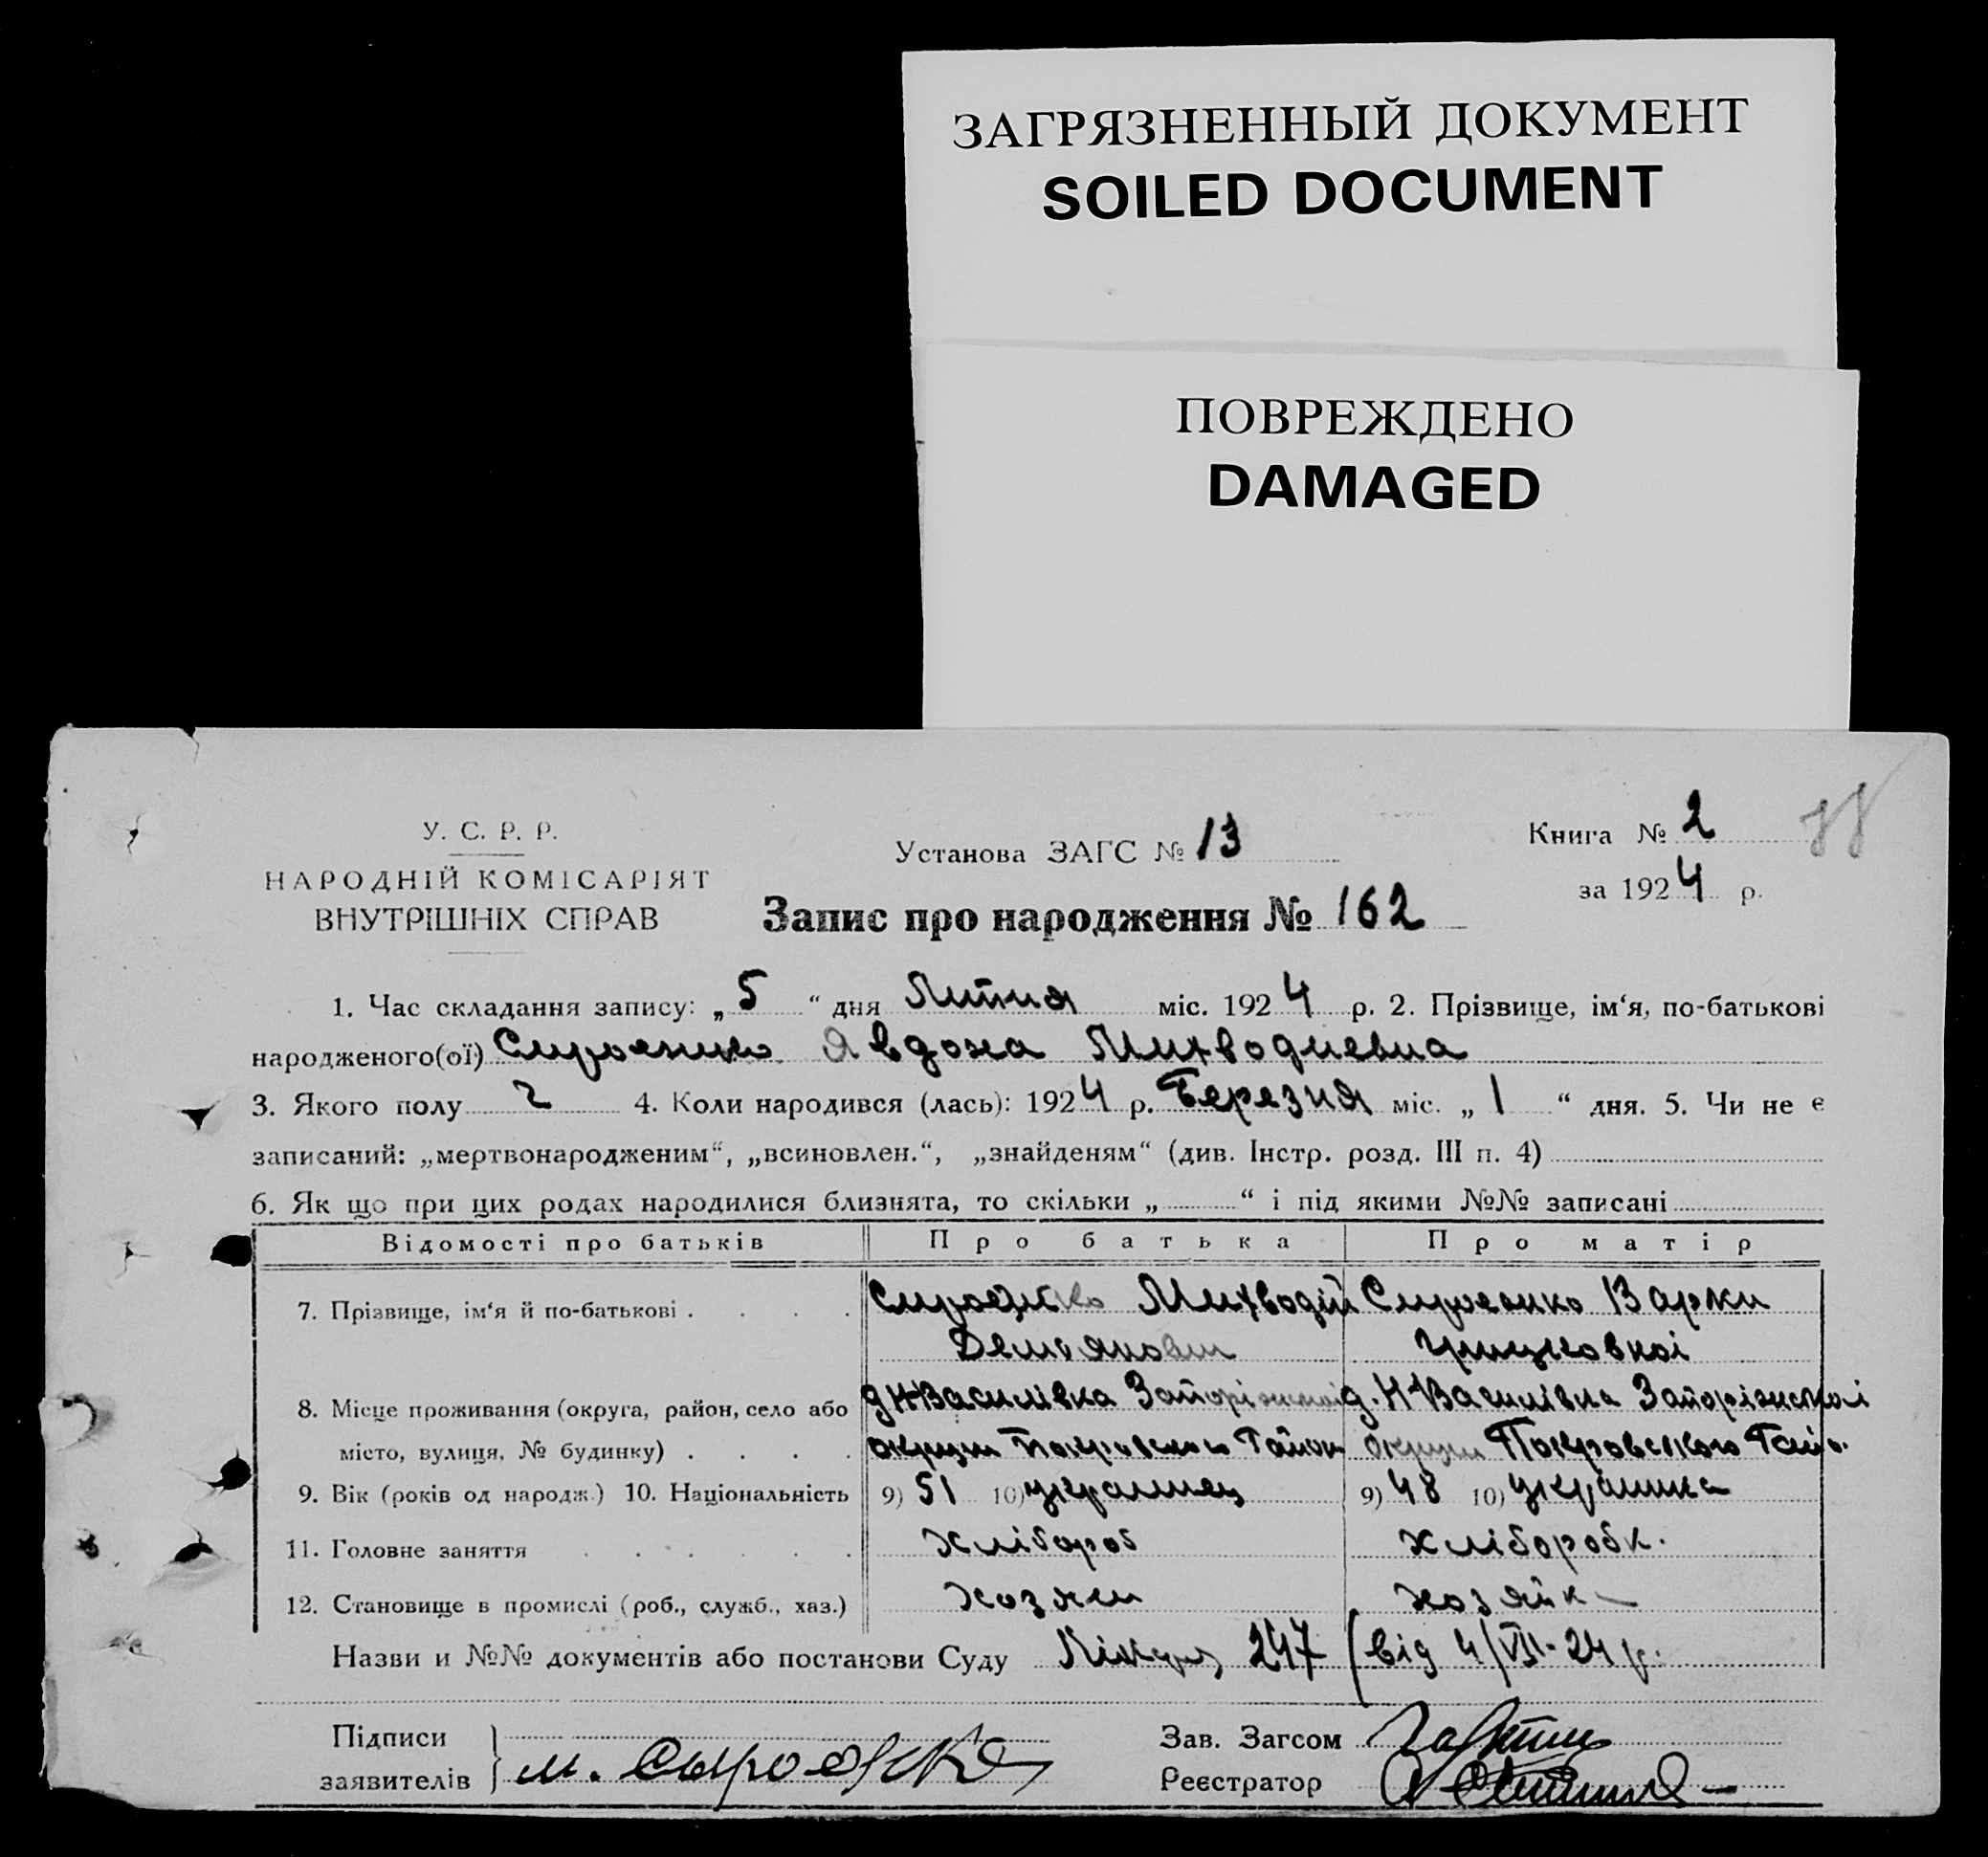 ЗАГРЯЗНЕННЫЙ ДОКУМЕНТ
SOILED DOCUMENT
ПОВРЕЖДЕНО
DAMAGED
У. С. Р. Р.
НАРОДНІЙ КОМІСАРІЯТ
ВНУТРІШНІХ СПРАВ
Установа ЗАГС № 13
Книга № 2
за 1924 р.
Запис про народження № 162
1. Час складання запису: „5“ дня Липня міс. 1924 р. 2. Прізвище, ім‘я, по-батькові
народженого(ої) Сироенко Явдоха Михводиевна
3. Якого полу 4. Коли народився (лась): 1924 р. Березня міс. „1“ дня. 5. Чи не є
записаний: „мертвонародженим“, „всиновлен.“, „знайденям“ (див. Інстр. розд. III п. 4)
6. Як що при цих родах народилися близнята, то скільки „ “ і під якими №№ записані
Відомості про батьків Про батька Про матір
7. Прізвище, ім‘я й по-батькові . . . . Сироенко Михводій Сироенко Варки
Демянович
8. Місце проживання (округа, район, село або д. Н-Василівка Запоріжської д. Н-Василівка Запоріжської
місто, вулиця, № будинку) . . . . округи Покровського Район округи Покровського Райо.
9. Вік (років од народж.) 10. Національність 9) 51 10) українец 9) 48 10) українка
11. Головне заняття . . . . . . хлібороб хлиборобк.
12. Становище в промислі (роб., служб., хаз.) хозяин хозяйк
Назви и №№ документів або постанови Суду 247 від 4/VII-24 р.
Підписи
заявителів м. Сыроенко
Зав. Загсом
Реєстратор